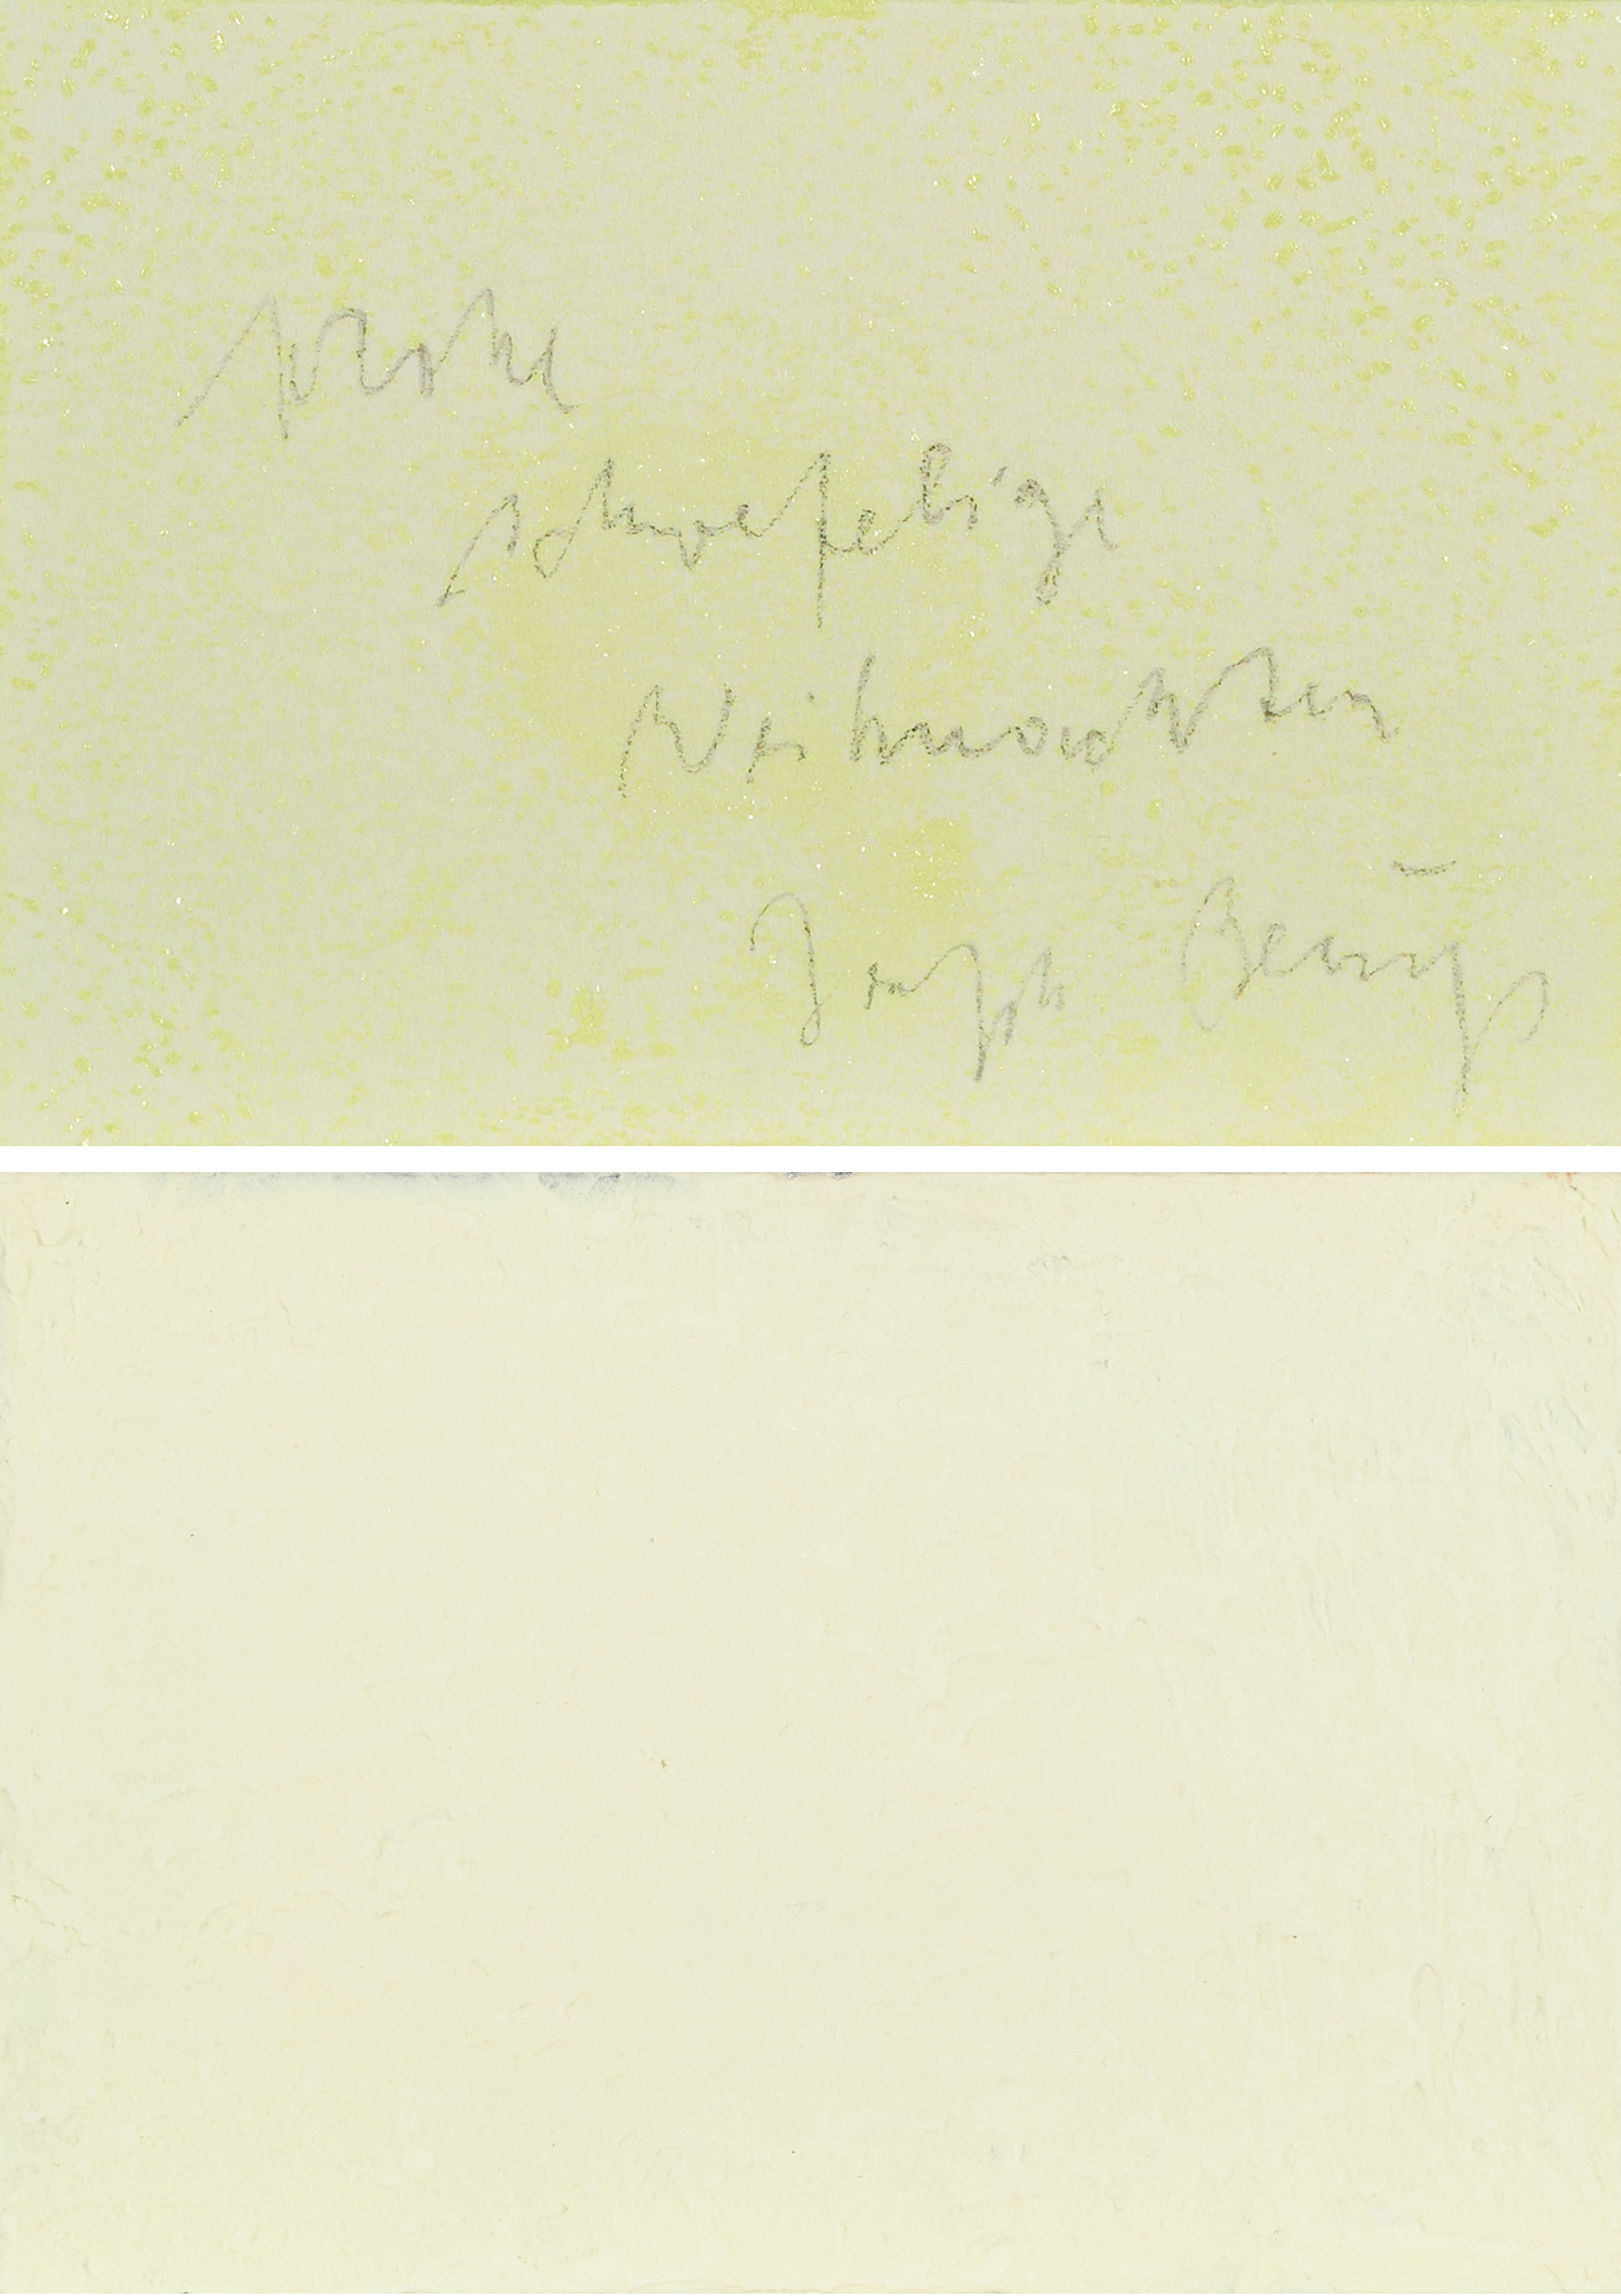 frohe
schwefelige
Weihnachten
Joseph Beuys